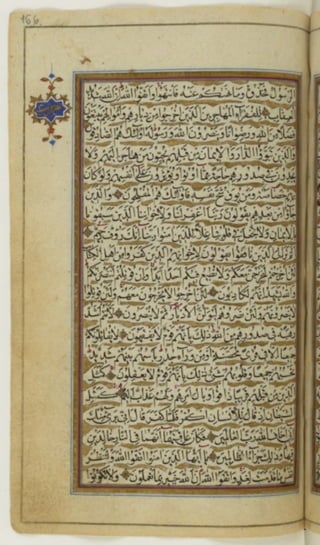 166
الرسول فخذوه وما نهيكم عنه فانتهوا واتقوا الله ان الله شديد
العقاب للفقراء المهاجرين الذين اخرجوا من ديارهم واموالهم يبتغون
فضلا من الله ورضوانا وينصرون الله ورسوله اولئك هم الصادقون
والذين تبوؤ الدار والايمان من قبلهم يحبون من هاجر اليهم ولا
يجدون في صدورهم حاجة مما اوتوا ويؤثرون على انفسهم ولو كان
بهم خصاصة ومن يوق شح نفسه فاولئك هم المفلحون والذين
جاؤا من بعدهم يقولون ربنا اغفر لنا ولاخواننا الذين سبقونا
بالايمان ولا تجعل في قلوبنا غلا للذين امنوا ربنا انك رؤف رحيم
الم تر الى الذين نافقوا يقولون لاخوانهم الذين كفروا من اهل الكتاب
لئن اخرجتم لنخرجن معكم ولا نطيع فيكم احدا ابدا وان قوتلتم لننصرنكم
والله يشهد انهم لكاذبون لئن اخرجوا لا يخرجون معهم ولئن قوتلوا
لا ينصرونهم ولئن نصروهم ليولن الادبار ثم لا ينصرون لانتم اشد
رهبة في صدورهم من الله ذلك بانهم قوم لا يفقهون لا يقاتلونكم
جميعا الا في قرى محصنة او من وراء جدر باسهم بينهم شديد
تحسبهم جميعا وقلوبهم شتى ذلك بانهم قوم لا يعقلون كمثل
الذين من قبلهم قريبا ذاقوا وبال امرهم ولهم عذاب اليم كمثل
الشيطان اذ قال للانسان اكفر فلما كفر قال اني بريء منك
اني اخاف الله رب العالمين فكان عاقبتهما انهما في النار خالدين
فيها وذلك جزاؤا الظالمين يا ايها الذين امنوا اتقوا الله ولتنظر نفس
ما قدمت لغد واتقوا الله ان الله خبير بما تعملون ولا تكونوا